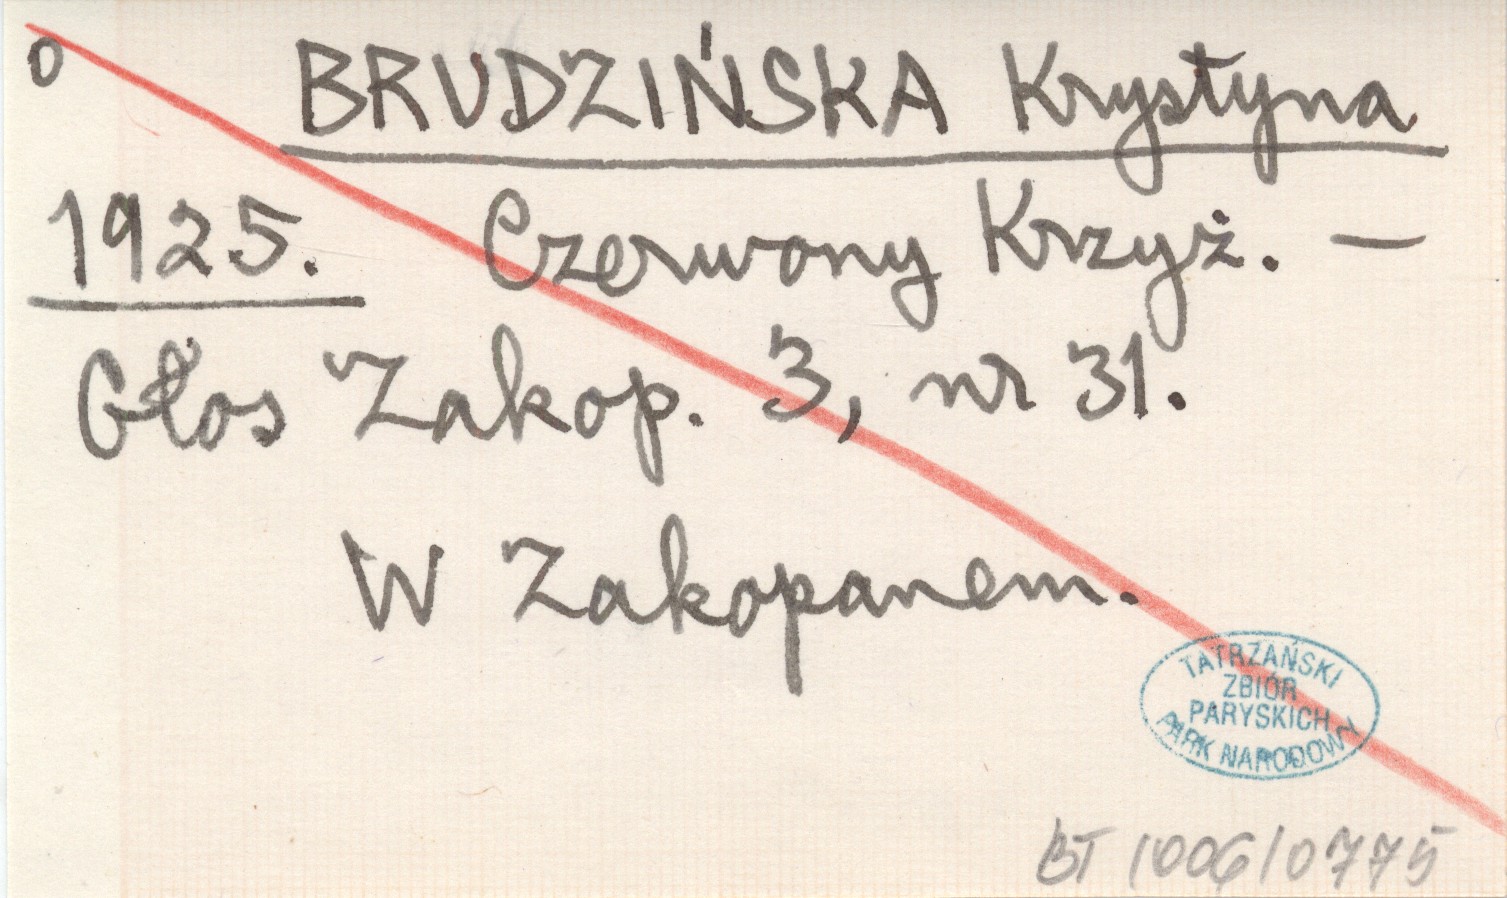 o BRUDZIŃSKA Krystyna
1925. Czerwony Krzyż. —
Głos Zakop. 3, nr 31.
W Zakopanem.
TATRZAŃSKI
ZBIÓR
PARYSKICH
PARK NARODOWY
BT/006/0775